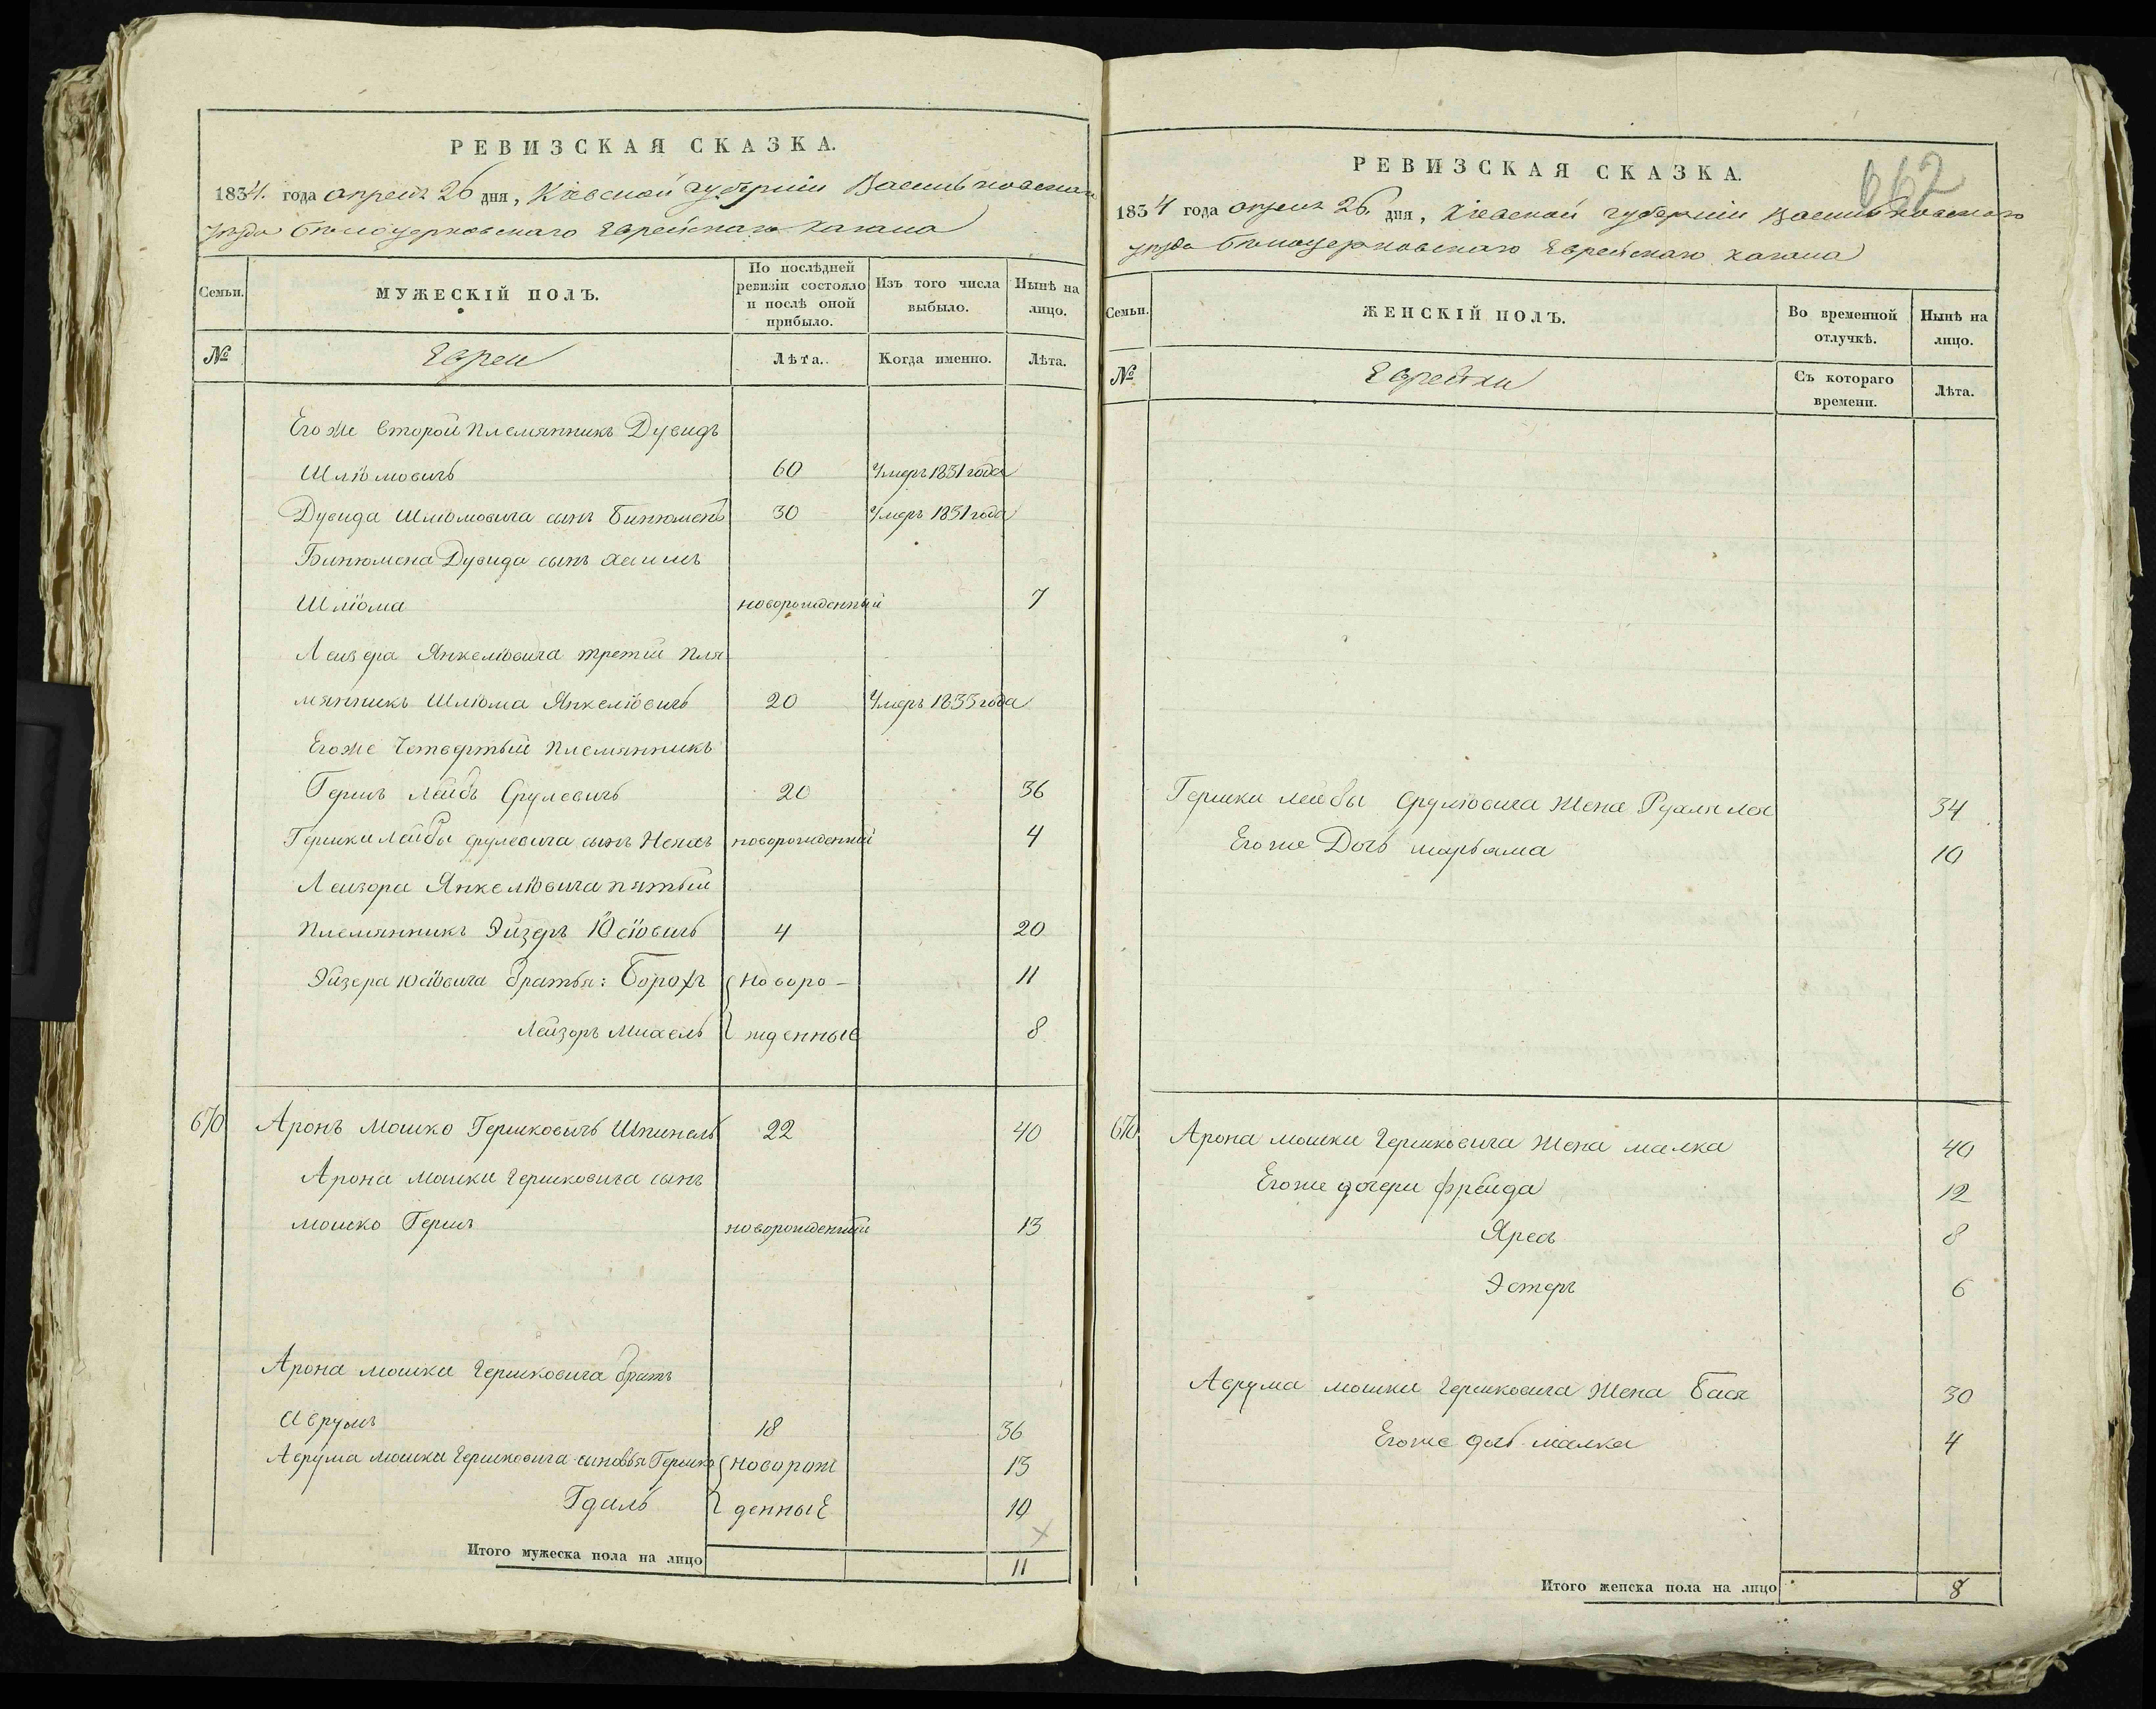 РЕВИЗСКАЯ СКАЗКА.
1834. года апреля 26 дня, Кіевской губерніи Васильковскаго
уезда Белоцерковскаго Еврейскаго Кагала
Семьи.
МУЖЕСКІЙ ПОЛЪ.
По послѣдней ревизіи состояло и послѣ оной прибыло.
Изъ того числа выбыло.
Нынѣ на лицо.
№
Евреи
Лѣта.
Когда именно.
Лѣта.
Его же второй племянникъ Дувидъ
Шлiомовичъ 60 Умеръ 1831 года
Дувида Шлiомовича сынъ Бинюменъ 30 Умеръ 1831 года
Бинюмена Дувида сынъ Хаимъ
Шлiома новорожденный 7
Леизера Янкелiовича третій пля
мянникъ Шлiома Янкелiовичъ 20 Умеръ 1833 года
Егоже Четвертый племянникъ
Гершъ Лейбъ Срулевичъ 20 36
Гершки Лейбы Срулевича сынъ новорожденный 4
Леизора Янкелiовича пятый
племянникъ Эйзеръ Юсiовичъ 4 20
Эйзера Юсiовича братья: Борохъ новоро- 11
Лейзоръ Михель жденные 8
670 Аронъ Мошко Гершковичъ Шпинель 22 40
Арона Мошки Гершковича сынъ
Мошко Гершъ новорожденный 13
Арона Мошки Гершковича братъ
Аврумъ 18 36
Аврума Мошки Гершковича сыновья Гершко новорож 13
Гдаль денные 10
Итого мужеска пола на лицо 11
662
РЕВИЗСКАЯ СКАЗКА.
1834 года апреля 26. дня, Кіевской губерніи Васильковскаго
уезда Белоцерковскаго Еврейскаго Кагала
Семьи.
ЖЕНСКІЙ ПОЛЪ.
Во временной отлучкѣ.
Нынѣ на лицо.
№
Еврейки
Съ котораго времени.
Лѣта.
Гершки Лейбы Срулiовича жена 34
Егоже Дочь Марьяма 10
670 Арона Мошки Гершковича жена Малка 40
Егоже дочери Фрейда 12
8
Эстеръ 6
Аврума Мошки Гершковича жена Бася 30
Егоже дочь Малка 4
Итого женска пола на лицо 8